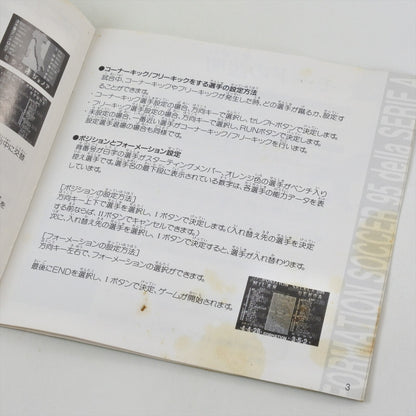 ●コーナーキック/フリーキックをする選手の設定方法
試合中、コーナーキックやフリーキックが発生した時、どの選手が蹴るか、設定す
ることができます。
・コーナーキック選手設定の場合、方向キーで選択し、セレクトボタンで決定します。
・フリーキック選手設定の場合、方向キーで選択し、RUNボタンで決定します。
未設定の場合、一番近い選手がコーナーキック/フリーキックを行います。
設定選手退場の場合も同様です。
●ポジションとフォーメーション設定
背番号が白字の選手がスターティングメンバー、オレンジ色の選手がベンチ入り
控え選手です。選手名の最下段に表示されている数字は、各選手の能力データを表
しています。
[ポジションの設定方法]
方向キー上下で選手を選択し、Iボタンで決定します。(入れ替え先の選手を決定
する前ならば、IIボタンでキャンセルできます。)
次に、入れ替え先の選手を選択し、Iボタンで決定すると、選手が入れ替わります。
[フォーメーションの設定方法]
方向キー左右で、フォーメーションの選択ができます。
最後にENDを選択し、Iボタンで決定、ゲームが開始されます。
FORMATION SOCCER 95 della SERIE A
3